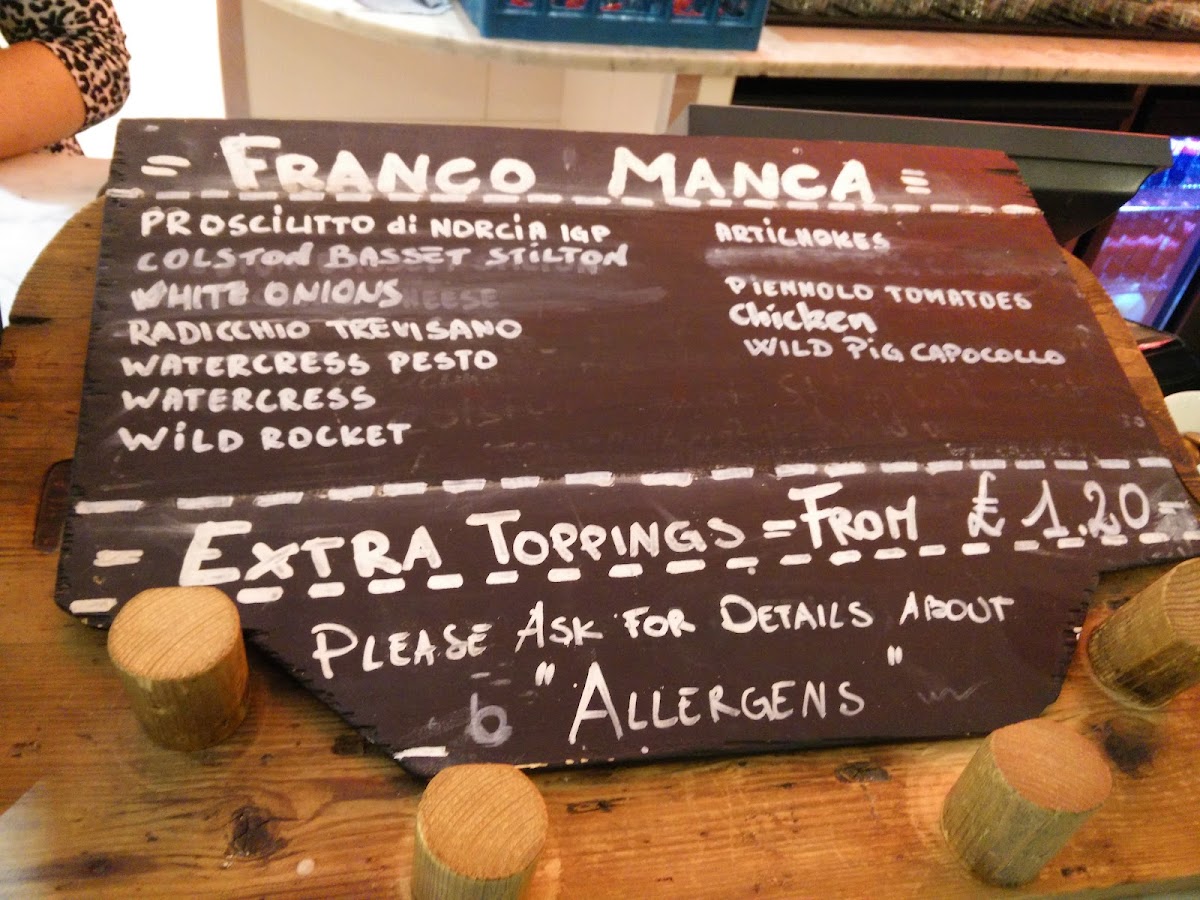 = FRANCO MANCA =
PROSCIUTTO di NORCIA IGP
COLSTON BASSET STILTON
WHITE ONIONS
RADICCHIO TREVISANO
WATERCRESS PESTO
WATERCRESS
WILD ROCKET
ARTICHOKES
PIENNOLO TOMATOES
Chicken
WILD PIG CAPOCOLLO
= EXTRA TOPPINGS = FROM £ 1.20 =
PLEASE ASK FOR DETAILS ABOUT
" ALLERGENS "